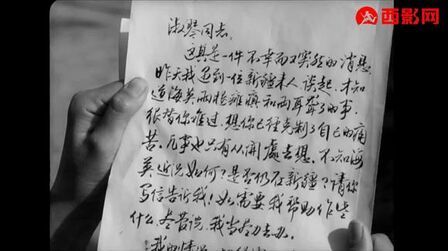 西影网
淑琴同志,
这真是一件不幸而又突然的消息
昨天我遇到一位新疆来人谈起,才知
道海英两腿瘫痪和两耳聋了的事,
很替你难过,想你已经克制了自己的痛
苦,凡事也只有从开处去想,不知海
英近况如何?是否仍在新疆?请你
写信告诉我!如需要我帮助作些
什么,尽管说,我当尽力去办。
我的情况